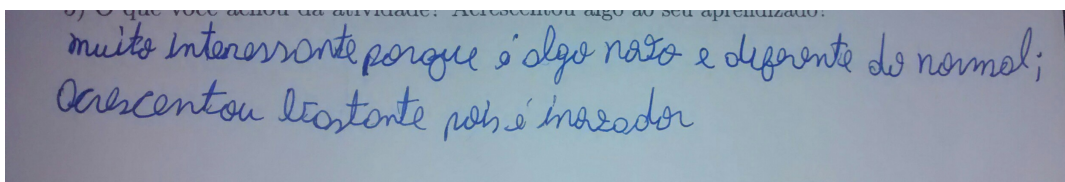 5) O que você achou da atividade? Acrescentou algo ao seu aprendizado?
muito interessante porque é algo novo e diferente do normal;
acrescentou bastante pois é inovador